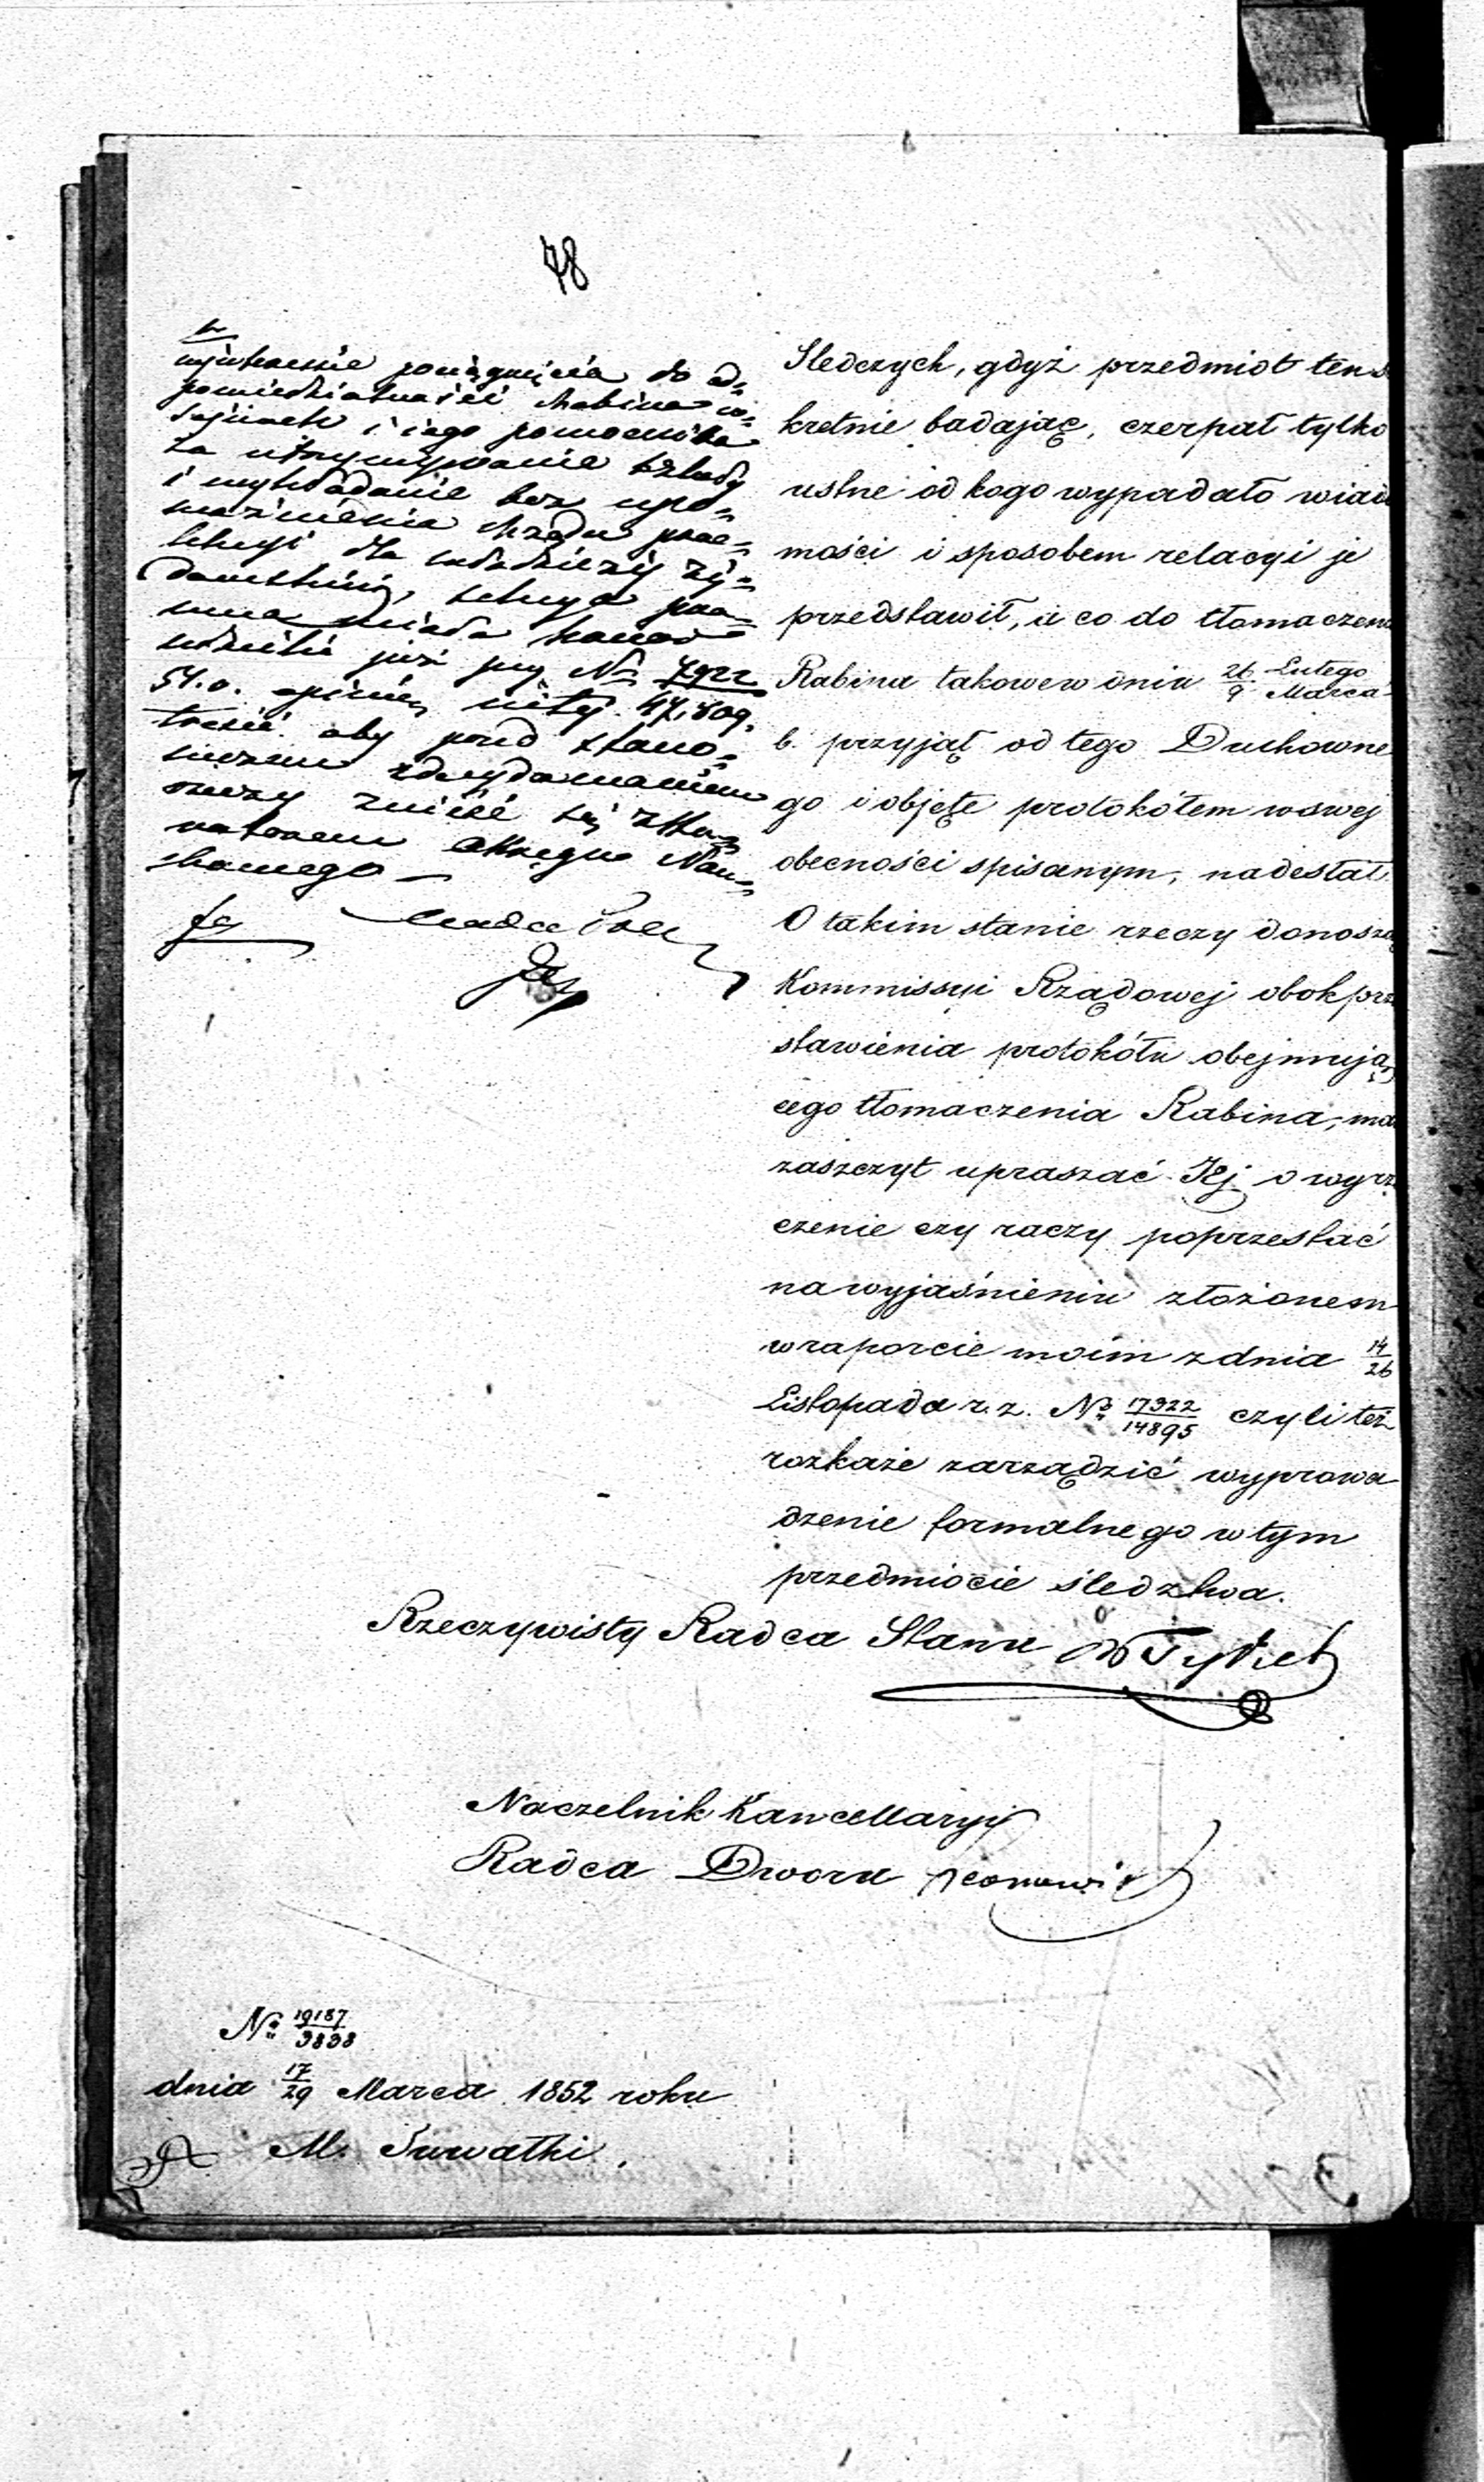 48
pociągnięcia do od=
powiedzialności Rabina w
Sejnach i jego pomocnika
za utrzymywanie szkoły
i wykładanie bez upo=
ważnienia Rządu
dla młodzieży ży=
dowskiej,
już przy Nr 7922
51.r. opinię 47,809.
treści aby przed stano=
zdecydowaniem
rzeczy znieść się z Ku=
ratorem Okręgu Nau=
kowego
Śledczych, gdyż przedmiot ten s
kretnie badając, czerpał tylko
ustne od kogo wypadało wiado
mości i sposobem relacyi je
przedstawił, a co do tłomaczeni
Rabina takowe w dniu 26 Lutego / 9 Marca
b. przyjął od tego Duchowne
go i objęte protokółem w swej
obecności spisanym, nadesłał.
O takim stanie rzeczy donosząc
Kommissyi Rządowej obok prze
stawienia protokółu obejmują
cego tłomaczenia Rabina, mam
zaszczyt upraszać Jej o wyrze
czenie czy raczy poprzestać
na wyjaśnieniu złożonem
w raporcie moim z dnia 14/26
Listopada r. z. No 17322/14895 czyli też
rozkaże zarządzić wyprowa
dzenie formalnego w tym
przedmiocie śledztwa.
Rzeczywisty Radca Stanu
Naczelnik Kancellaryi
Radca Dworu
No 19187/3898
dnia 17/29 Marca 1852 roku
M. Suwałki.